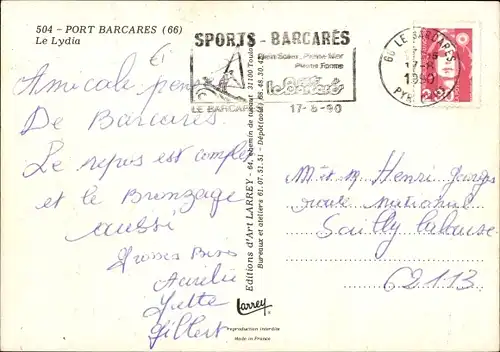 504 - PORT BARCARES (66)
Le Lydia
SPORTS - BARCARÈS
Plein Soleil, Pleine Mer
Pleine Forme
LE BARCARÈS
le Barcarès
17-8-90
66 LE BARCARES
17-8
1990
PYR.
Amicale
De Barcarès.
Le repos est complet
et le Bronzage
aussi
Grosses Bises
Aurélie
Yvette
Gilbert
Editions d'Art LARREY - 64, chemin de 31100 Toulouse
Bureaux et ateliers 61.07.51.51 - Dépôt 68.48.30.42
Larrey
Reproduction interdite
Made in France
M et M Henri Georges
route nationale
Sailly labourse
62113